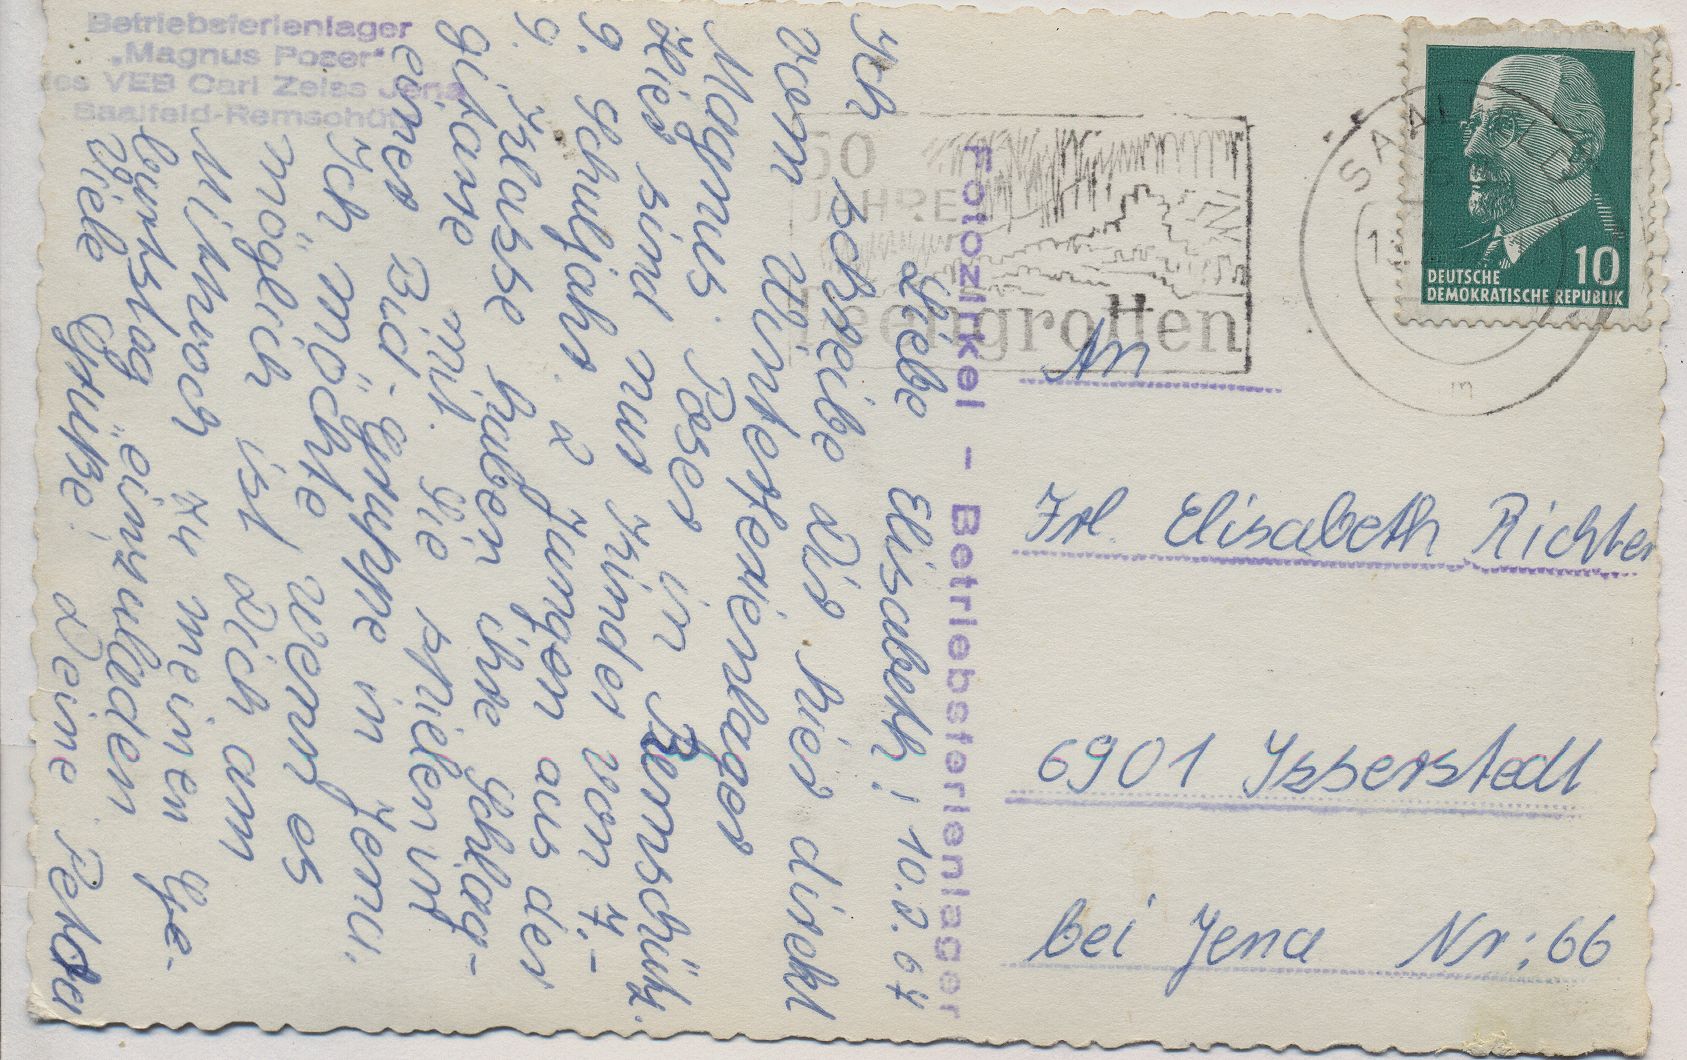 Betriebsferienlager
„Magnus Poser“
des VEB Carl Zeiss Jena
Saalfeld-Remschütz
Liebe Elisabeth! 10.2.64
Ich schreibe Dir hier direkt
vom Winterferienlager
Magnus Poser in Remschütz.
Hier sind nur Kinder von 7.-
9. Schuljahr. 2 Jungen aus der
9. Klasse haben ihre Schlag-
gitarre mit. Sie spielen in
einer Bid-Gruppe in Jena.
Ich möchte wenn es
möglich ist Dich am
Mittwoch zu meinen Ge-
burtstag einzuladen.
Viele Grüße! Deine Petra
Fotozirkel - Betriebsferienlager
50
JAHRE
Feengrotten
SAALFELD
m
10
DEUTSCHE
DEMOKRATISCHE REPUBLIK
An
Frl. Elisabeth Richter
6901 Isserstedt
bei Jena Nr: 66